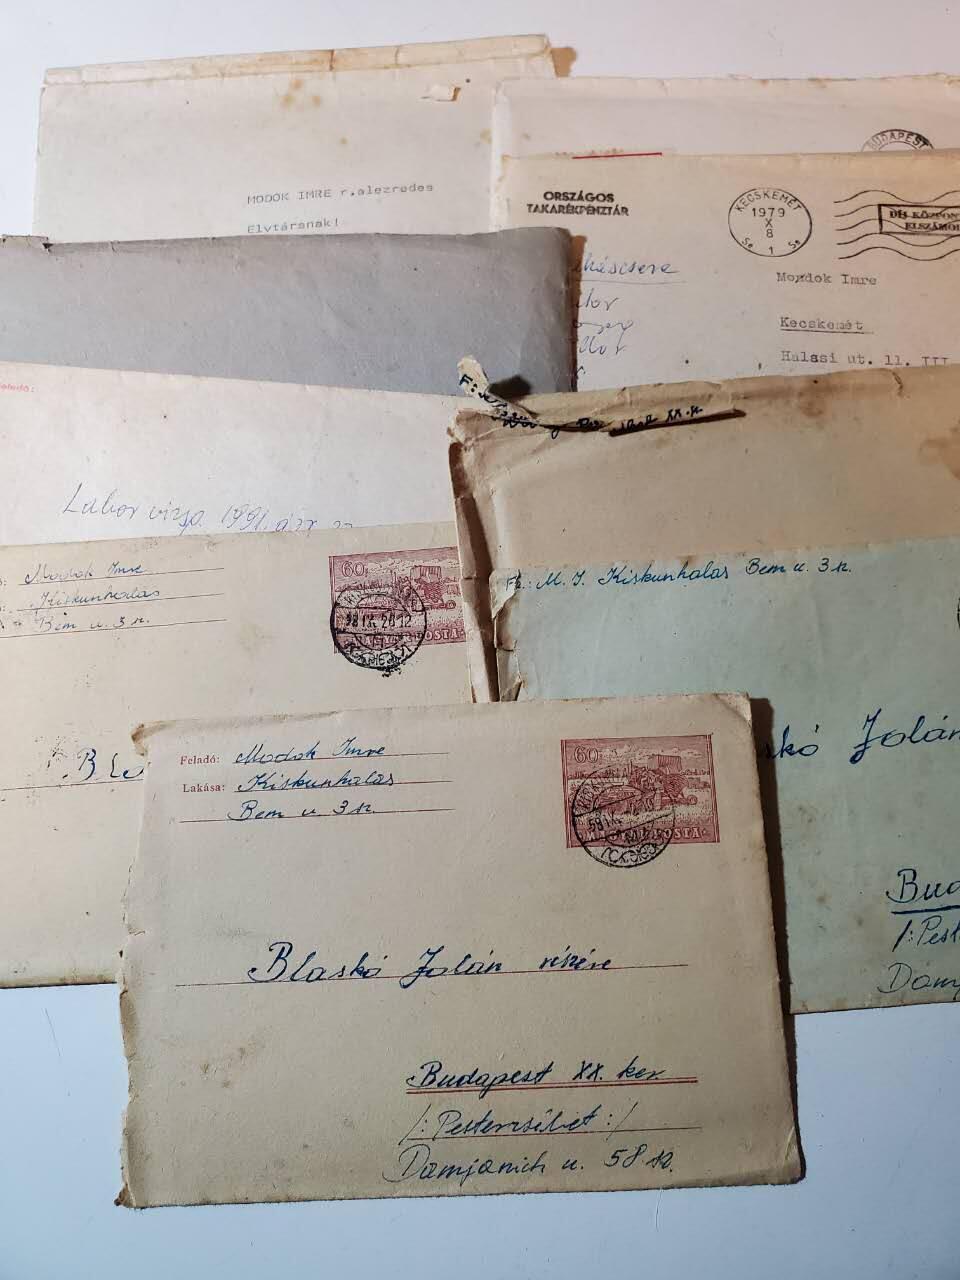 MODOK IMRE r.alezredes
Elvtársnak!
BUDAPEST
ORSZÁGOS
TAKARÉKPÉNZTÁR
KECSKEMÉT
1979
X
8
1
Modok Imre
Kecskemét
Halasi ut. 11. III
Feladó:
Labor vizsg. 1991.
F:
XX. k
Modok Imre
Kiskunhalas
Bem u. 3 sz.
60
MAGYAR POSTA
F.: M. I. Kiskunhalas Bem u. 3 sz.
skó Jolán
Bud
/: Pest
Damj
Feladó: Modok Imre
Lakása: Kiskunhalas
Bem u. 3 sz.
60
MAGYAR POSTA
Blaskó Jolán részére
Budapest XX. ker.
/: Pesterzsébet :/
Damjanich u. 58 sz.